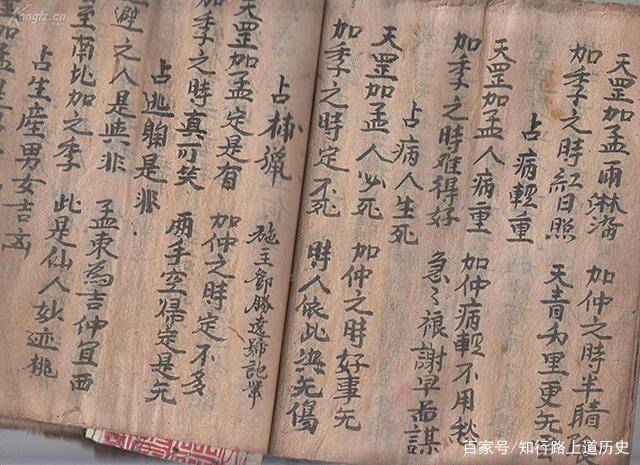 天罡加孟雨淋漓 加仲之時半晴
加季之時紅日照 天青万里更无
占病輕重
天罡加孟人病重 加仲病輕不用愁
加季之時难得好 急々禳謝早為謀
占病人生死
天罡加孟人必死 加仲之時好事无
加季之時定不死 時人依此與无傷
施主鄧勝遠歸記筆
占林猎
天罡加孟定是有 加仲之時定不多
加季之時真可笑 兩手空歸定是无
占逃躲是非
避之人是與非 孟東為吉仲宜西
至南北加之季 此是仙人妙迹桃
占生産男女吉凶
加孟是
Kongfz.cn
百家号/知行路上道历史